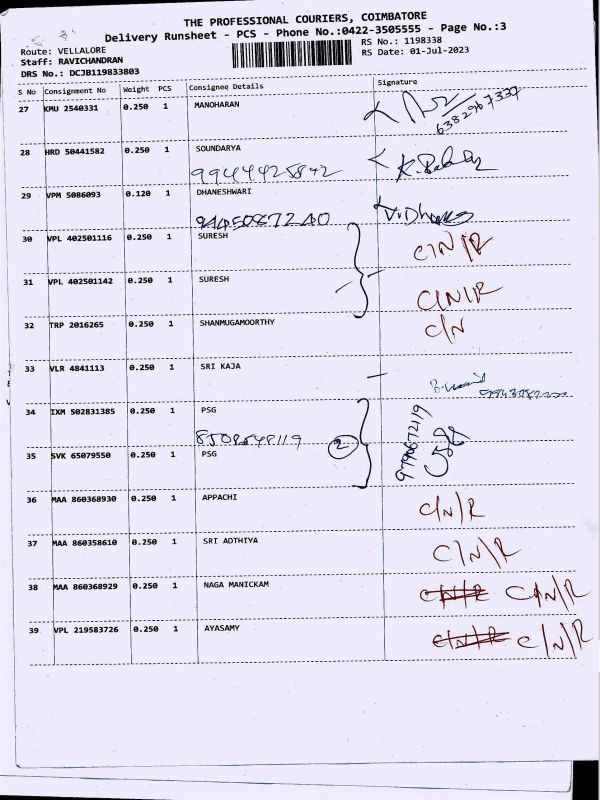 THE PROFESSIONAL COURIERS, COIMBATORE
Delivery Runsheet - PCS - Phone No.:0422-3505555 - Page No.:3
Route: VELLALORE
RS No.: 1198338
Staff: RAVICHANDRAN
RS Date: 01-Jul-2023
DRS No.: DCJB119833803
S No Consignment No Weight PCS Consignee Details Signature
27 KMU 2540331 0.250 1 MANOHARAN
6382967337
28 HRD 50441582 0.250 1 SOUNDARYA
9944425842
29 VPM 5086093 0.120 1 DHANESHWARI
9445087240
30 VPL 402501116 0.250 1 SURESH C/N/R
31 VPL 402501142 0.250 1 SURESH C/N/R
32 TRP 2016265 0.250 1 SHANMUGAMOORTHY C/N
33 VLR 4841113 0.250 1 SRI KAJA
34 IXM 502831385 0.250 1 PSG
8508548119 2
35 SVK 65079550 0.250 1 PSG
9790672119
36 MAA 860368930 0.250 1 APPACHI C/N/R
37 MAA 860358610 0.250 1 SRI ADTHIYA C/N/R
38 MAA 860368929 0.250 1 NAGA MANICKAM C/N/R C/N/R
39 VPL 219583726 0.250 1 AYASAMY C/N/R C/N/R